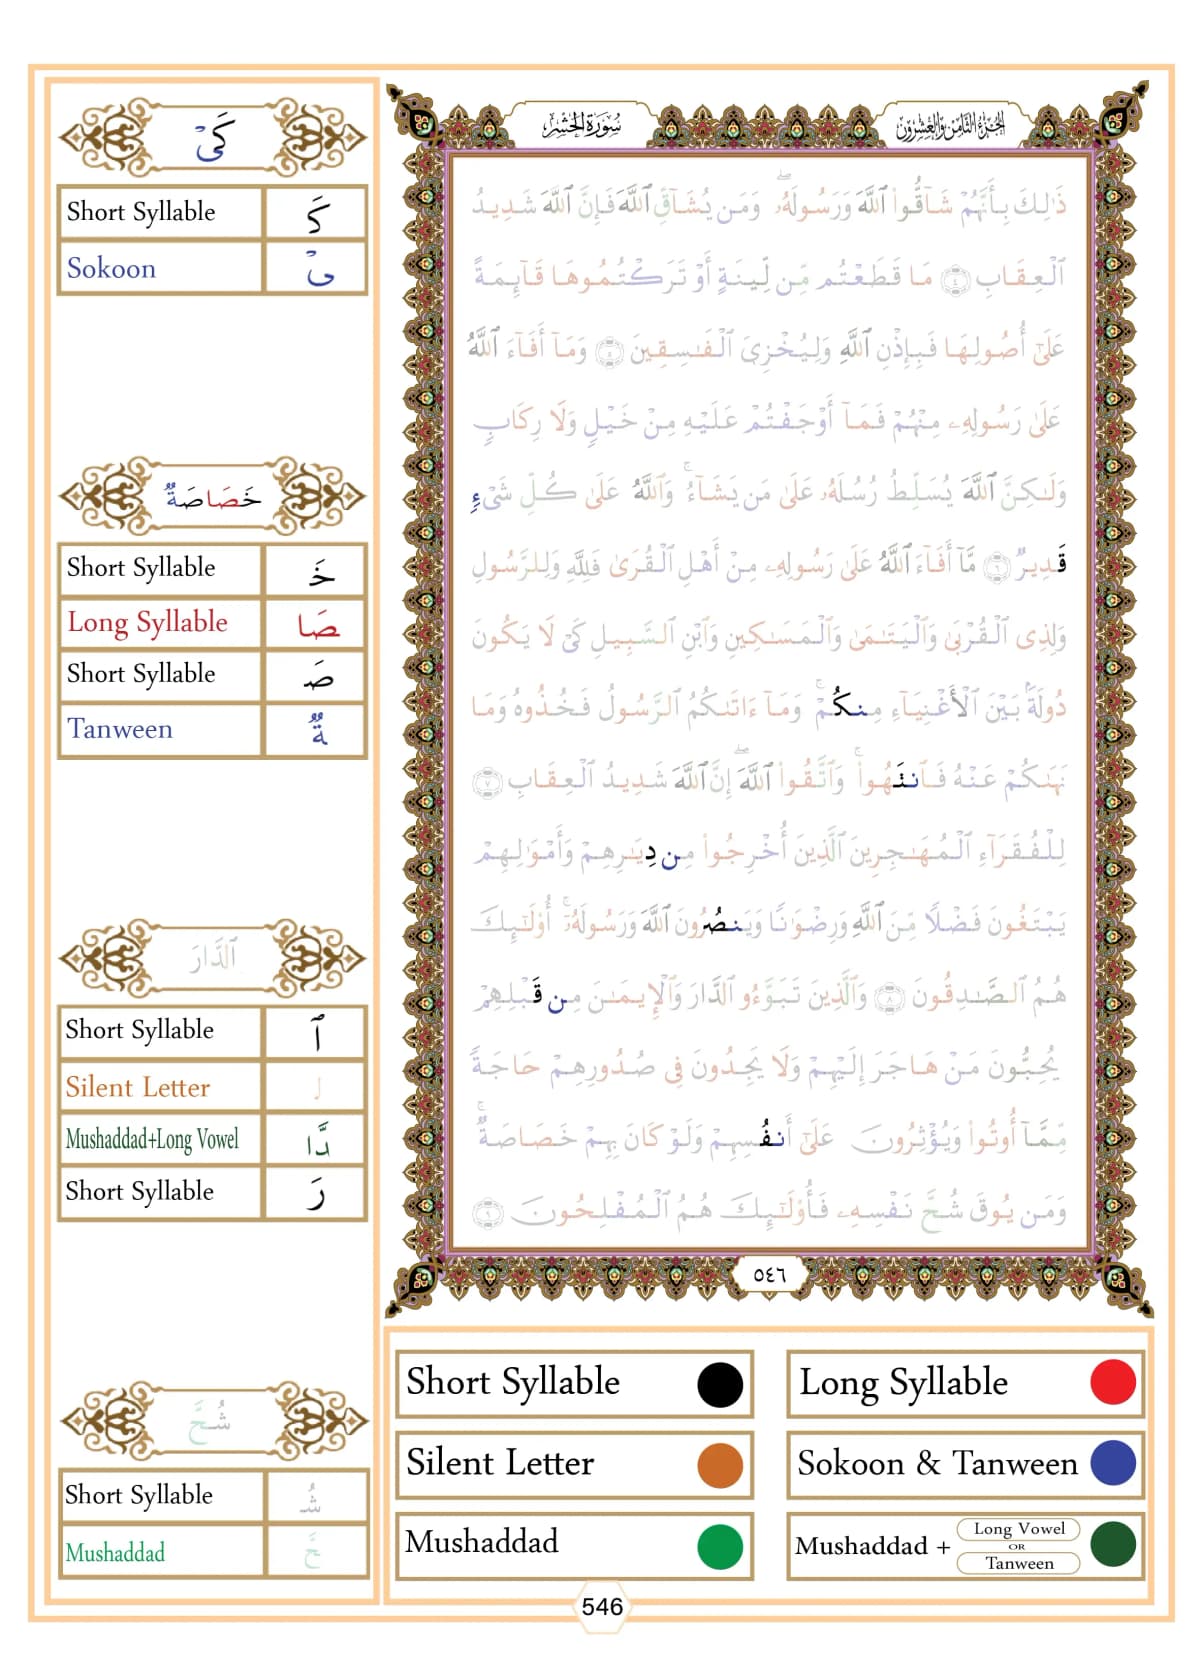 كَىْ
Short Syllable كَ
Sokoon ىْ
خَصَاصَةٌ
Short Syllable خَ
Long Syllable صَا
Short Syllable صَ
Tanween ةٌ
ٱلدَّارَ
Short Syllable ٱ
Silent Letter ل
Mushaddad+Long Vowel دَّا
Short Syllable رَ
شُحَّ
Short Syllable شُ
Mushaddad حَّ
سُورَةُ الحَشْرِ
الجُزْءُ الثَّامِنُ وَالعِشْرُونَ
ذَٰلِكَ بِأَنَّهُمْ شَآقُّوا۟ ٱللَّهَ وَرَسُولَهُۥ ۖ وَمَن يُشَآقِّ ٱللَّهَ فَإِنَّ ٱللَّهَ شَدِيدُ
ٱلْعِقَابِ ٤ مَا قَطَعْتُم مِّن لِّينَةٍ أَوْ تَرَكْتُمُوهَا قَآئِمَةً
عَلَىٰٓ أُصُولِهَا فَبِإِذْنِ ٱللَّهِ وَلِيُخْزِىَ ٱلْفَـٰسِقِينَ ٥ وَمَآ أَفَآءَ ٱللَّهُ
عَلَىٰ رَسُولِهِۦ مِنْهُمْ فَمَآ أَوْجَفْتُمْ عَلَيْهِ مِنْ خَيْلٍ وَلَا رِكَابٍ
وَلَـٰكِنَّ ٱللَّهَ يُسَلِّطُ رُسُلَهُۥ عَلَىٰ مَن يَشَآءُ ۚ وَٱللَّهُ عَلَىٰ كُلِّ شَىْءٍ
قَدِيرٌ ٦ مَّآ أَفَآءَ ٱللَّهُ عَلَىٰ رَسُولِهِۦ مِنْ أَهْلِ ٱلْقُرَىٰ فَلِلَّهِ وَلِلرَّسُولِ
وَلِذِى ٱلْقُرْبَىٰ وَٱلْيَتَـٰمَىٰ وَٱلْمَسَـٰكِينِ وَٱبْنِ ٱلسَّبِيلِ كَىْ لَا يَكُونَ
دُولَةًۢ بَيْنَ ٱلْأَغْنِيَآءِ مِنكُمْ ۚ وَمَآ ءَاتَىٰكُمُ ٱلرَّسُولُ فَخُذُوهُ وَمَا
نَهَىٰكُمْ عَنْهُ فَٱنتَهُوا۟ ۚ وَٱتَّقُوا۟ ٱللَّهَ ۖ إِنَّ ٱللَّهَ شَدِيدُ ٱلْعِقَابِ ٧
لِلْفُقَرَآءِ ٱلْمُهَـٰجِرِينَ ٱلَّذِينَ أُخْرِجُوا۟ مِن دِيَـٰرِهِمْ وَأَمْوَٰلِهِمْ
يَبْتَغُونَ فَضْلًا مِّنَ ٱللَّهِ وَرِضْوَٰنًا وَيَنصُرُونَ ٱللَّهَ وَرَسُولَهُۥٓ ۚ أُو۟لَـٰٓئِكَ
هُمُ ٱلصَّـٰدِقُونَ ٨ وَٱلَّذِينَ تَبَوَّءُو ٱلدَّارَ وَٱلْإِيمَـٰنَ مِن قَبْلِهِمْ
يُحِبُّونَ مَنْ هَاجَرَ إِلَيْهِمْ وَلَا يَجِدُونَ فِى صُدُورِهِمْ حَاجَةً
مِّمَّآ أُوتُوا۟ وَيُؤْثِرُونَ عَلَىٰٓ أَنفُسِهِمْ وَلَوْ كَانَ بِهِمْ خَصَاصَةٌ ۚ
وَمَن يُوقَ شُحَّ نَفْسِهِۦ فَأُو۟لَـٰٓئِكَ هُمُ ٱلْمُفْلِحُونَ ٩
٥٤٦
Short Syllable
Long Syllable
Silent Letter
Sokoon & Tanween
Mushaddad
Mushaddad + Long Vowel OR Tanween
546